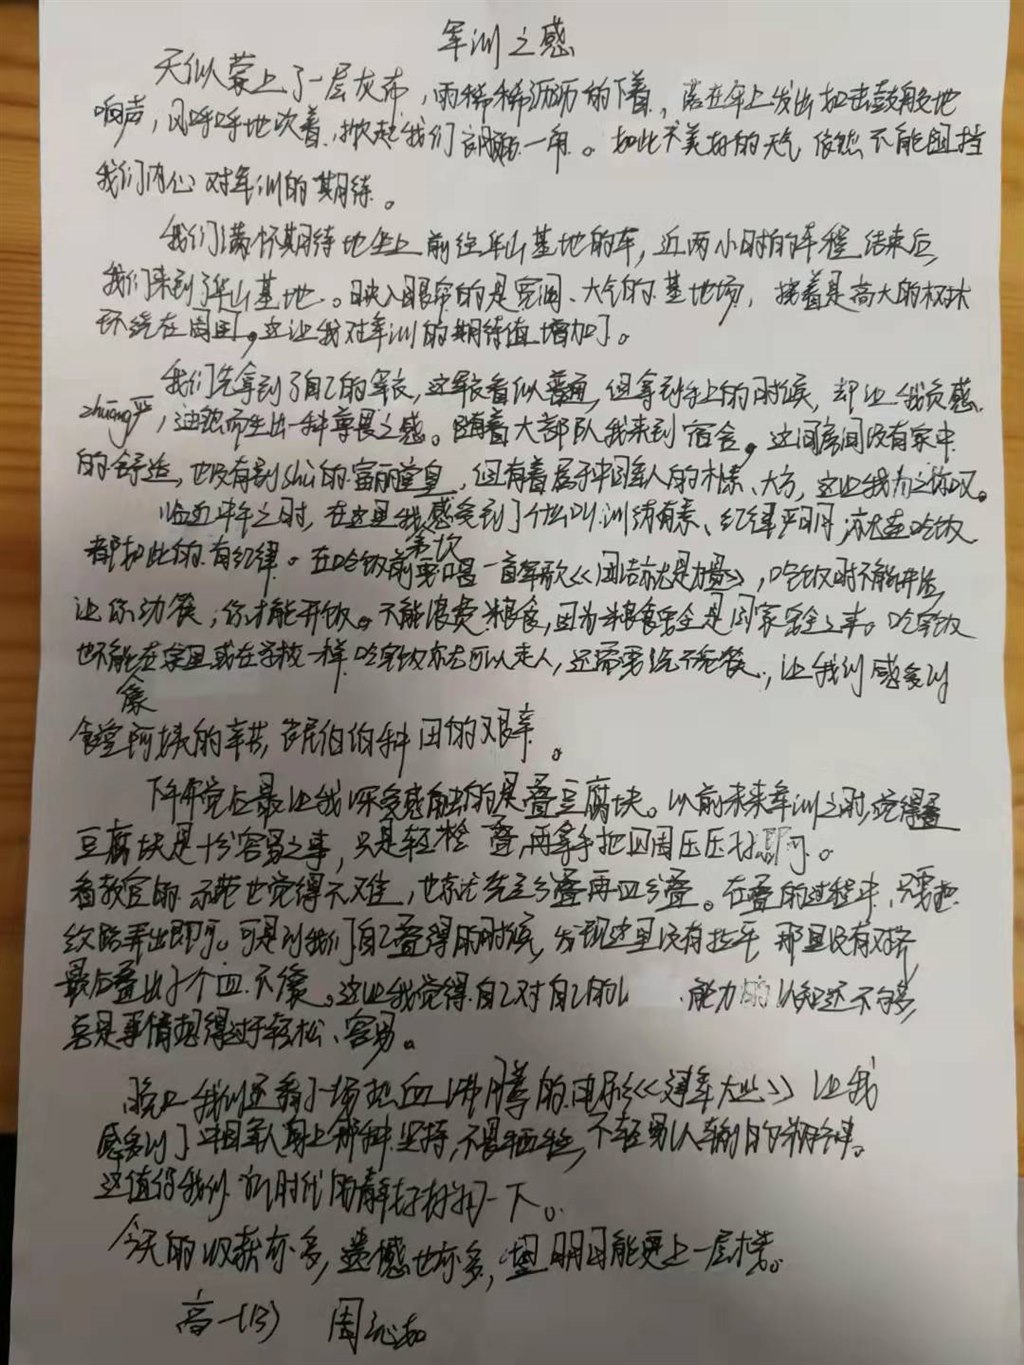 军训之感
天似蒙上了一层灰布,雨稀稀沥沥的下着,落在伞上发出如击鼓般地
响声,风呼呼地吹着,掀起我们一角。如此不美好的天气依然不能阻挡
我们内心对军训的期待。
我们满怀期待地坐上前往华山基地的车,近两小时的车程结束后,
我们来到了华山基地。映入眼帘的是宽阔、大气的基地场,接着是高大的树林
环绕在周围。这让我对军训的期待值增加了。
我们先拿到了自己的军衣,这军衣看似普通,但拿到手上的时候,却让我负感
zhuāng严,油然而生出一种尊畏之感。随着大部队我来到宿舍。这间房间没有家中
的舒适,也没有别shù的富丽堂皇,但有着属于中国军人的朴素、大方,这让我为之称叹。
临近中午之时,在这里我感受到了什么叫训练有素、纪律严明,就连吃饭
都如此的有纪律。在吃饭前要唱一首军歌《团结就是力量》,吃饭时不能讲话,
每次
让你动筷,你才能开饭。不能浪费粮食,因为粮食安全是国家安全之事。吃完饭
也不能在家里或在学校一样吃完饭就可以走人,还需要洗,让我们感受到
像
食堂阿姨的辛苦,农民伯伯种田的艰辛。
下午午觉后最让我深受感触的是叠豆腐块。以前未来军训之时,觉得叠
豆腐块是十分容易之事,只是轻松叠,再拿手把四周压压就即可。
看教官的示范也觉得不难,也就先三分叠再四分叠。在叠的过程中,只要把
纹路弄出即可。可是到我们自己叠得的时候,发现这里没有拉平,那里没有对齐
最后叠出了个四不像。这让我觉得自己对自己的能力的认知还不够,
总是事情想得过于轻松、容易。
晚上我们还看了一场热血沸腾的电影《建军大业》让我
感受到了中国军人身上那种坚持,不畏牺牲,不轻易认输的精神。
这值得我们新时代的青年好好学习一下。
今天的收获亦多,遗憾也亦多,望明日能更上一层楼。
高一(13) 周